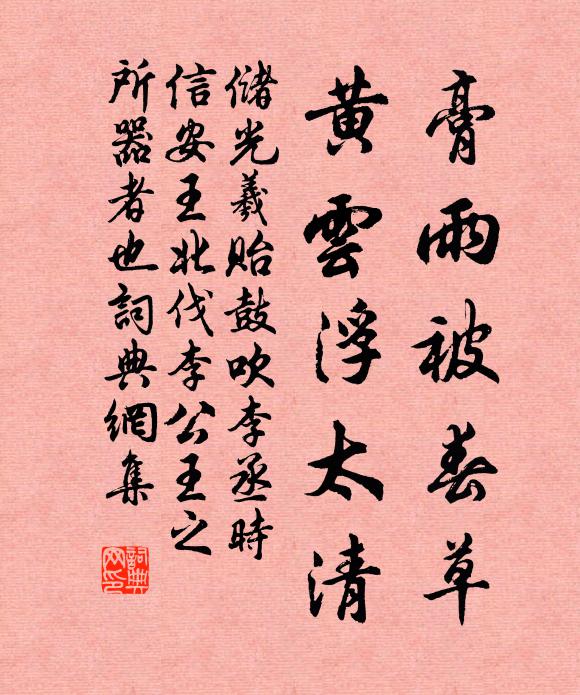 膏雨被春草
黃雲浮太清
儲光羲貽鼓吹李丞時
信安王北伐李公王之
所器者也詞典網集
詞典网印